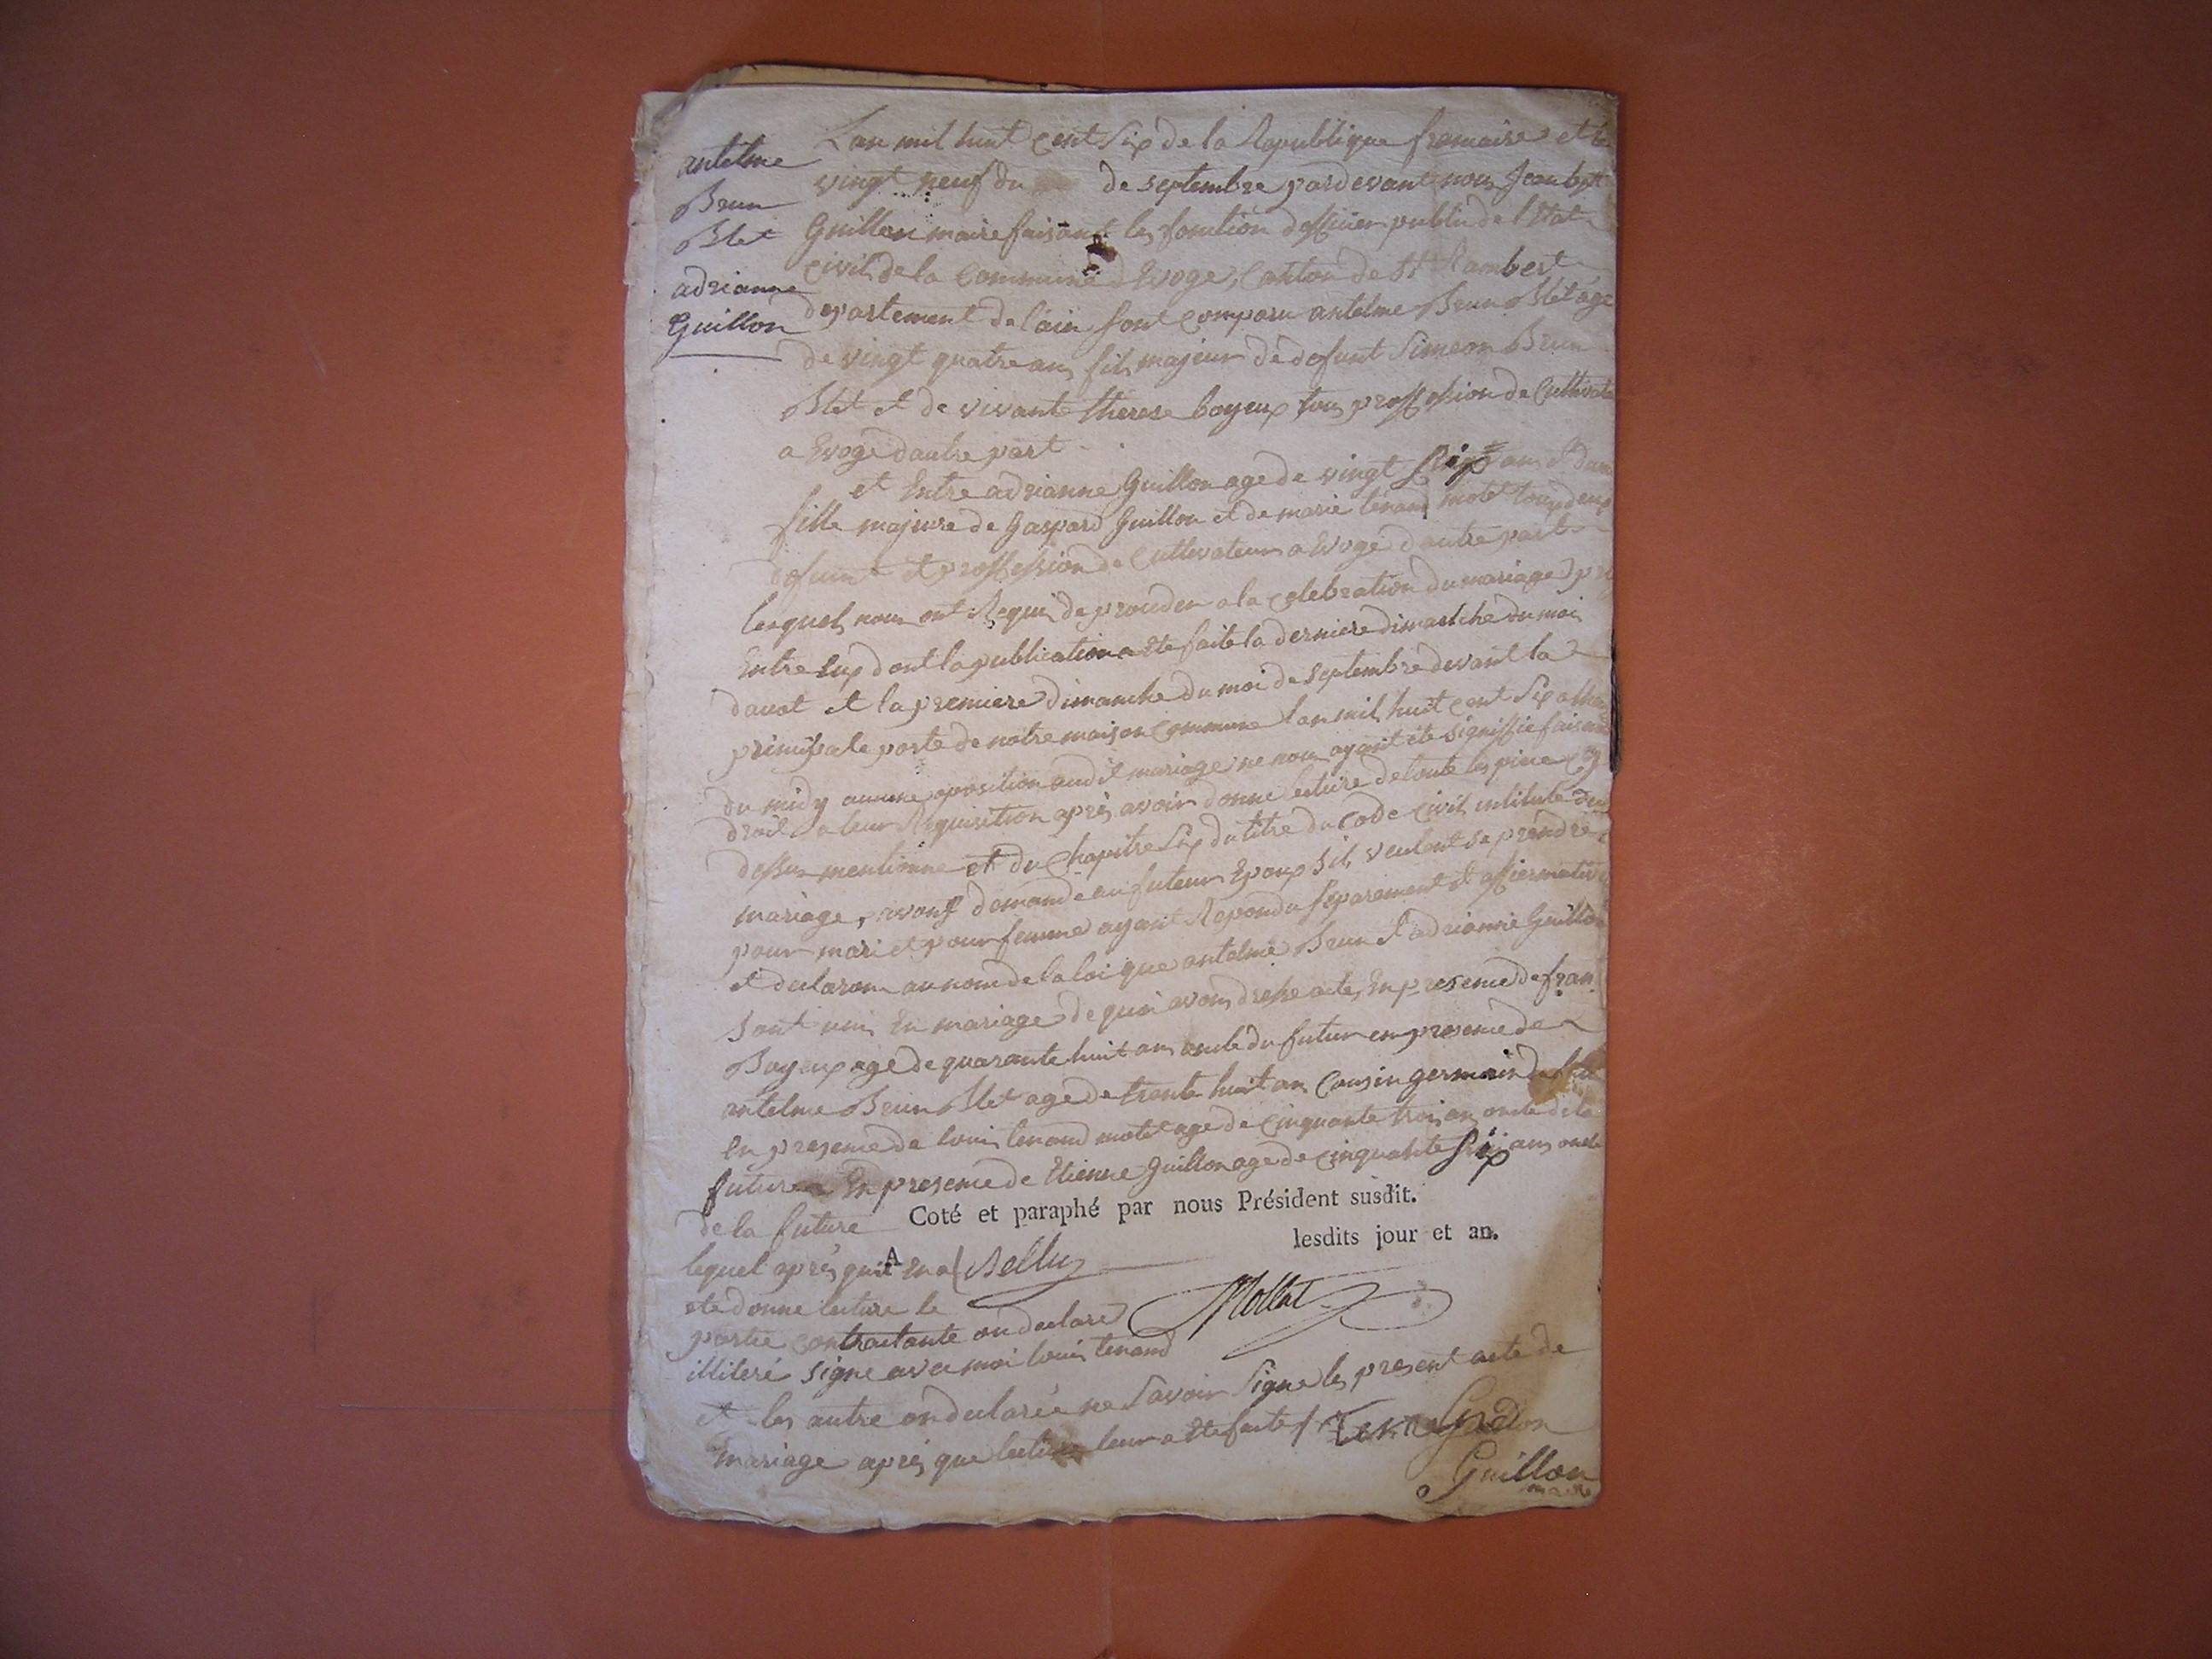 antelme
Brun
Blet
adrianne
Guillon
Lan mil huit cent Six de la Republique francaise et le
vingt neuf du de septembre pardevant nous Jean bpt
Guillon maire faisant les fonction dofficier public de l'Etat
civil de la Commune d Evoge, Canton de St Rambert
departement de l'ain sont comparu antelme Brun Blet age
de vingt quatre ans fils majeur de defunt Simeon Brun
Blet et de vivante therese boyeux tous proffession de Cultivate
a Evoge dautre part
et Entre adrianne Guillon age de vingt Six ans
fille majeure de Gaspard Guillon et de marie tenand motet tous deux
defunt et proffession de Cultivateur a Evoge d autre part
lesquels nous ont Requis de proceder a la celebration du mariage
Entre Eux dont la publication a Ete faite la derniere dimanche du moi
daout et la premiere dimanche du moi de septembre devant la
principale porte de notre maison Commune lan mil huit cent Six
du midy aucune oposition audit mariage ne nous ayant ete signiffie faisant
droit a leur Requisition après avoir donne lecture de toute les piece cy
dessus mentionne et du Chapitre Six du titre du Code Civil intitule du
mariage, avons demande au futeur Epoux Sils veulent se prendre
pour mari et pour femme ayant Repondu separement et affiermative
et declarons au nom de la loi que antelme Brun et adrianne Guillon
Sont uni En mariage de quoi avons dresse acte En presence de fran
Boyeux age de quarante huit ans oncle du futur en presence de
antelme Brun Blet age de trente huit ans Cousin germain du futur
En presence de louis tenand motet age de cinquante trois ans oncle de la
future En presence de Etienne Guillon age de cinquante Six ans oncle
de la future
Coté et paraphé par nous Président susdit.
lesdits jour et an.
lequel après quil En a
A Belley
ete donne lecture le
Mollat
partie contractante on declare
illiteré signe avec moi louis tenand
et les autre on declarée ne Savoir Signe les present acte de
mariage après que lecture leur a Ete faite
Guillon
maire